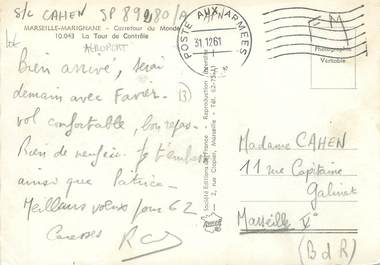 S/c CAHEN SP 89280/A AFN
MARSEILLE-MARIGNANE - Carrefour du Monde
10.043 La Tour de Contrôle
AÉROPORT
POSTE AUX ARMÉES
31.12 61
Photographie
Véritable
Bien arrivé, serai
demain avec Favier.
vol confortable, bon repas.
Rien de neuf. Je t'embrasse
ainsi que Patrice.
Meilleurs voeux pour 62
Caresses
Société Editions de France - Reproduction interdite
2, rue Copien, Marseille - Tél.
Madame CAHEN
11 rue Capitaine
Galinat
Marseille V°
(B d R)